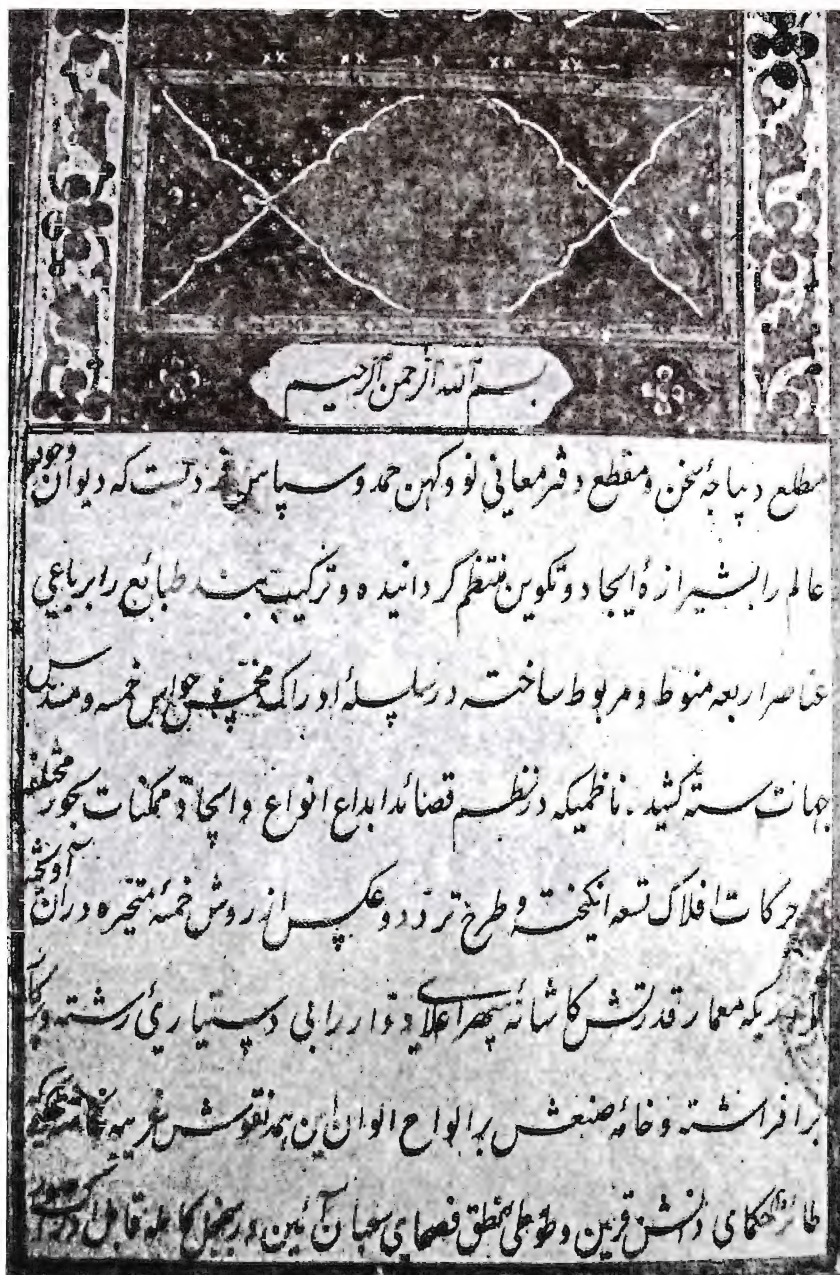 بسم الله الرحمن الرحیم
مطلع دیباچۀ سخن و مقطع دفتر معانی نو و کهن حمد و سپاس فردیست که دیوان وجود
عالم را بشیرازۀ ایجاد و تکوین منتظم گردانیده و ترکیب بند طبائع را برباعی
عناصر اربعه منوط و مربوط ساخته در سلسلۀ ادراک مخمس حواس خمسه و مسدس
جهات سته کشید. ناظمیکه در نظم قصائد ابداع انواع و ایجاد ممکنات بحور مختلفه
حرکات افلاک تسعه انگیخته و طرح تردد و عکس از روش خمسۀ متحیره دران آویخته
معمار قدرتش کاشانۀ سپهر اعلای دوار را بی دستیاریٔ رشته و
برافراشته و خامۀ صنعش بر الواح الوان این همه نقوش غریبه
طائر حکمای دانش قرین و طوطی منطق فصحای سحبان آئین در کامله قابل